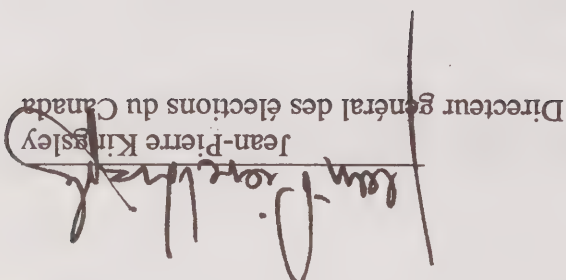 Jean-Pierre Kingsley
Jean-Pierre Kingsley
Directeur général des élections du Canada